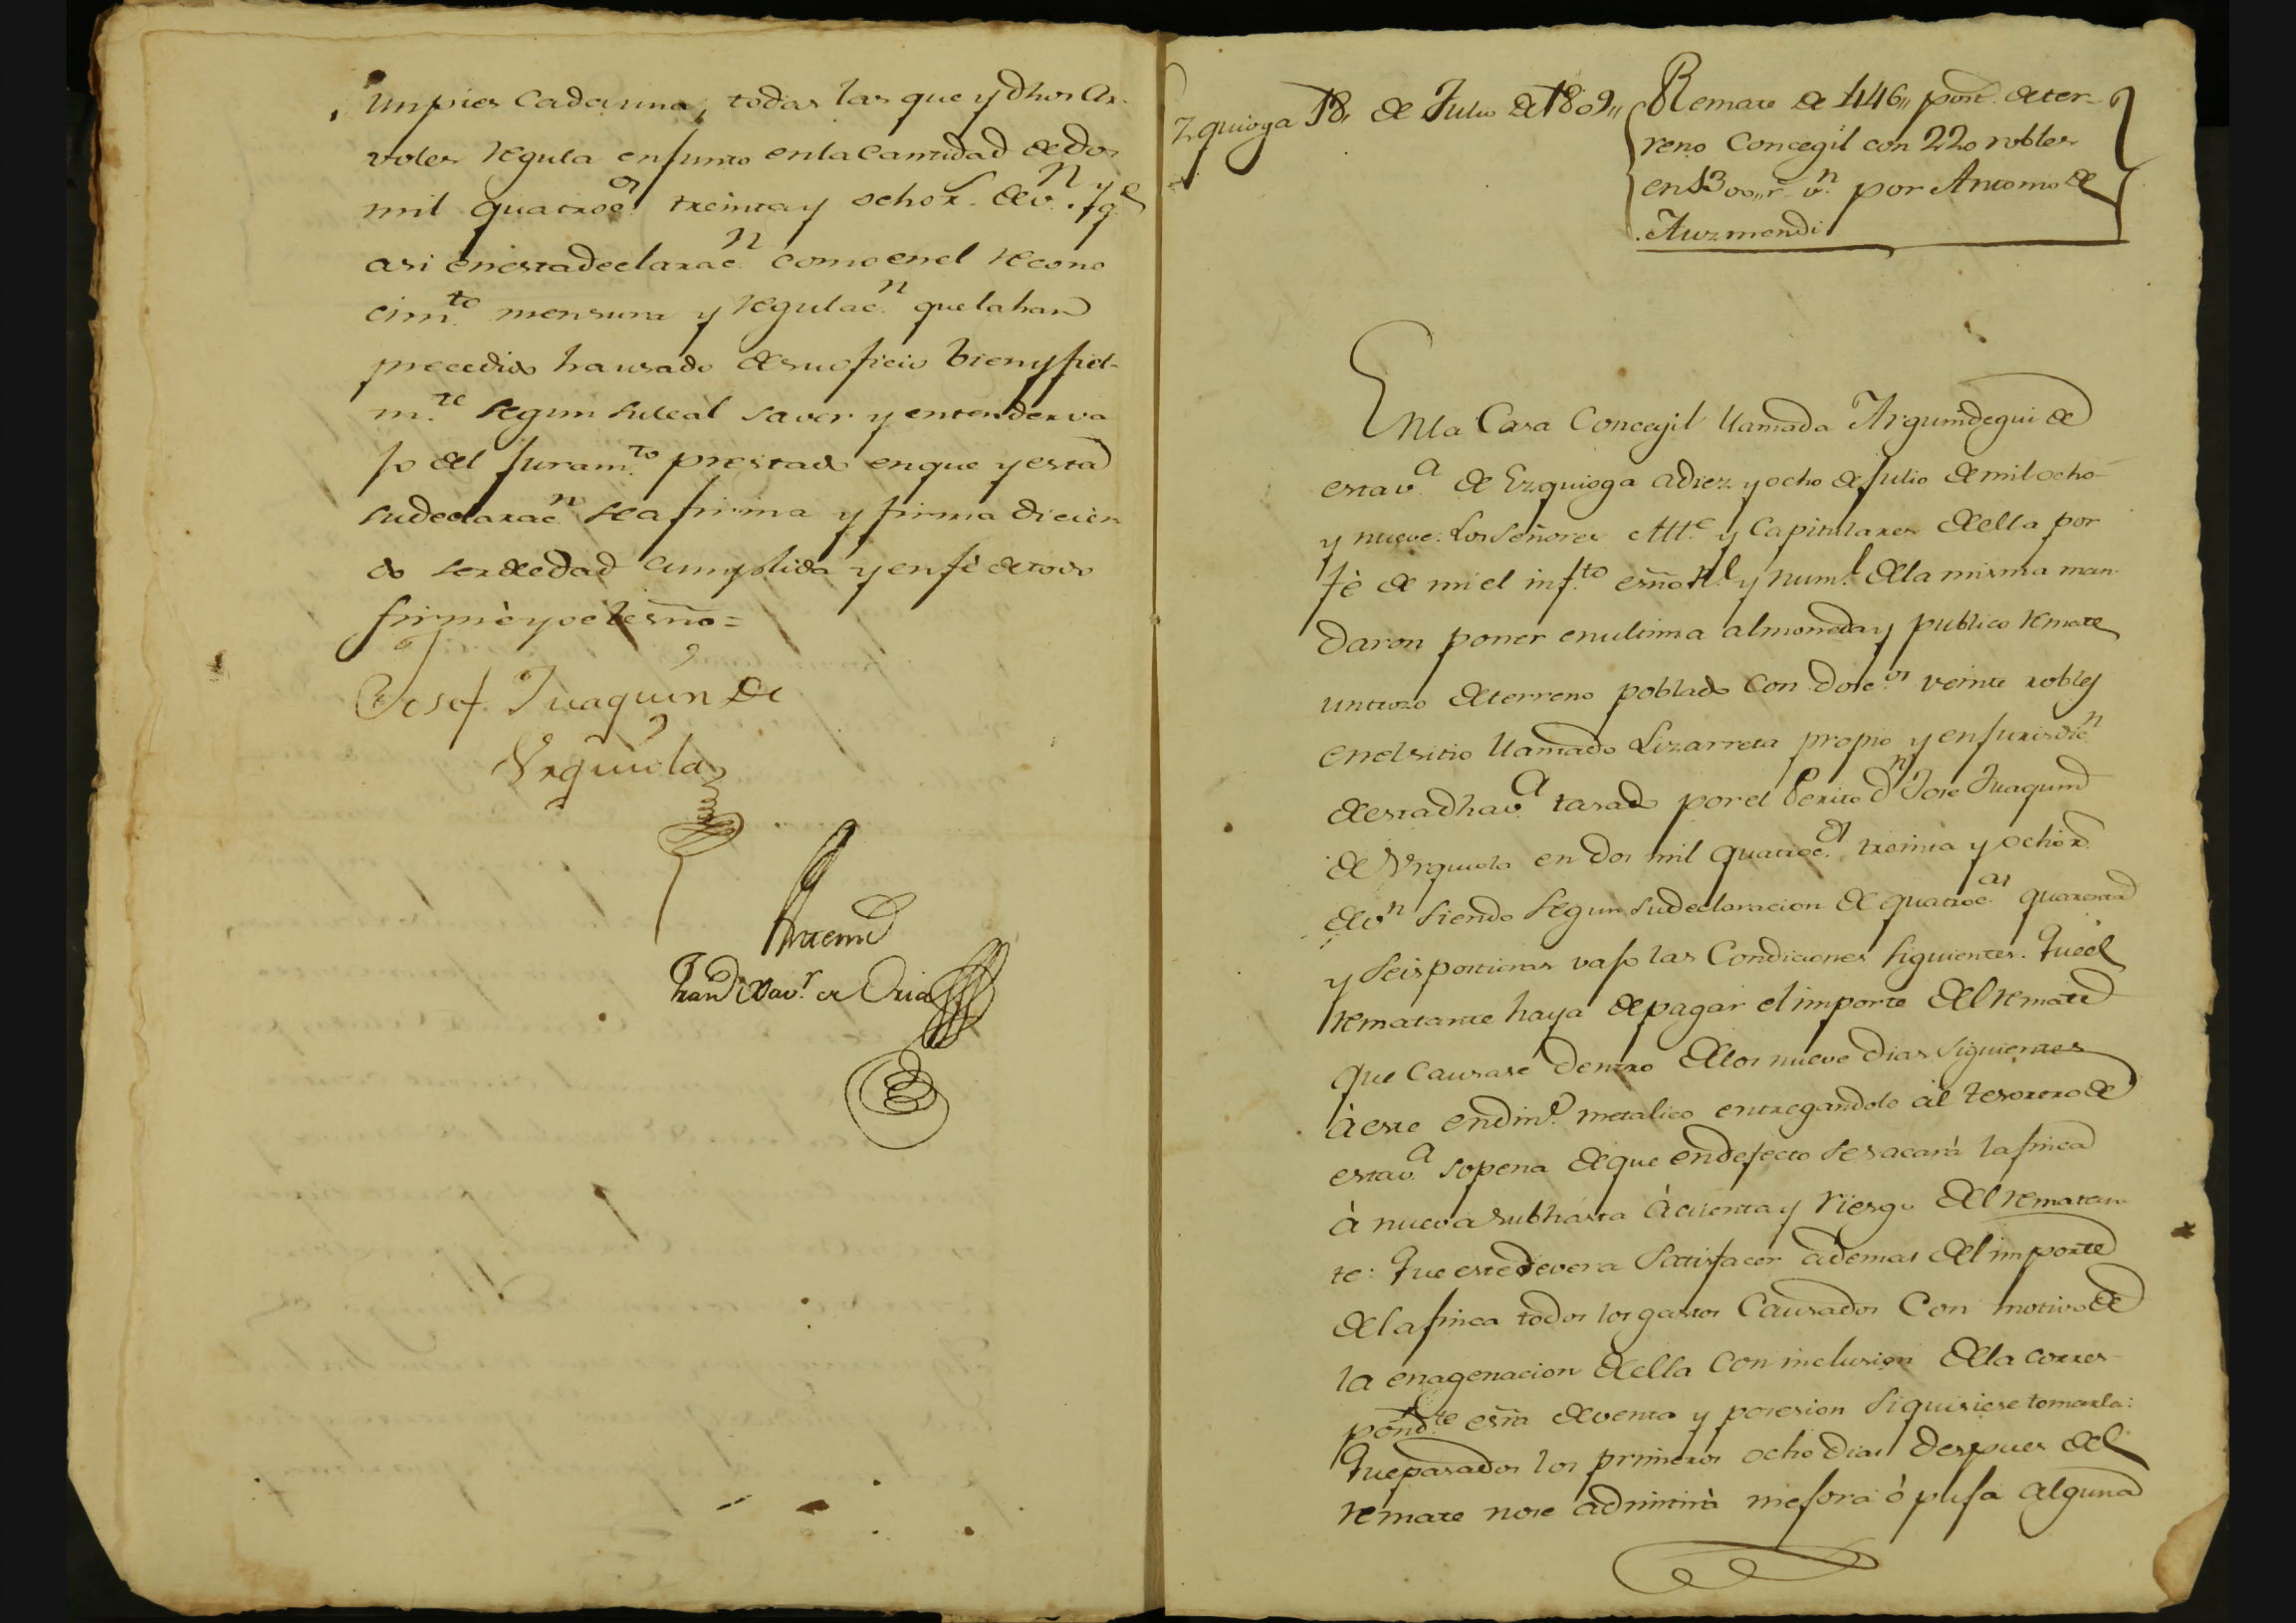 un pies cada una, todas las que y dhos Ar-
voles regula en junto en la cantidad de dos
mil quatroc.os treinta y ocho r.s de v.n y q.e
asi en esta declarac.n como en el recono
cim.to mensura y regulac.n que la han
precedido ha usado de su oficio bien y fiel-
m.te segun su leal saver y entender va
jo del juram.to prestado en que y esta
su declarac.n se afirma y firma dicien
do ser de edad cumplida y en fè de todo
firmè yo el esño =
Josef Juaquin de
Urquiola
Antemi
Fran.co Xav.r de Oria
Ezquioga 18, de Julio de 1809,,
Remate de 446,, post. de ter-
reno Concegil con 220 robles
en 1300,, r.s v.n por Antonio de
Auzmendi
En la Casa Concegil llamada Argumdegui de
esta v.a de Ezquioga a diez y ocho de Julio de mil ocho-
y nueve: Los Señores All.e y Capitulares de ella por
fè de mi el inf.to esño R.l y num.l de la misma man-
daron poner en ultima almoneda y publico remate
un trozo de terreno poblado con dosc.os veinte robles
en el sitio llamado Lizarreta propio y en jurisdic.n
de esta dha v.a tasado por el Perito d.n Jose Juaquin
de Urquiola en dos mil quatroc.os treinta y ocho r.s
de v.n siendo segun su declaracion de quatroc.as quarenta
y seis posturas vajo las Condiciones siguientes. Que el
rematante haya de pagar el importe del remate
que causase dentro de los nueve dias siguientes
à este en din.o metalico entregandolo al tesorero de
esta v.a so pena de que en defecto se sacarà la finca
à nueva subhasta à cuenta y riesgo del rematan-
te: Que este devera satisfacer ademas del importe
de la finca todos los gastos causados con motivo de
la enagenacion de ella con inclusion de la corres-
pond.te esrra de venta y posesion si quisiese tomarla:
Que pasados los primeros ocho dias despues del
remate no se admitirà mejora ò puja alguna